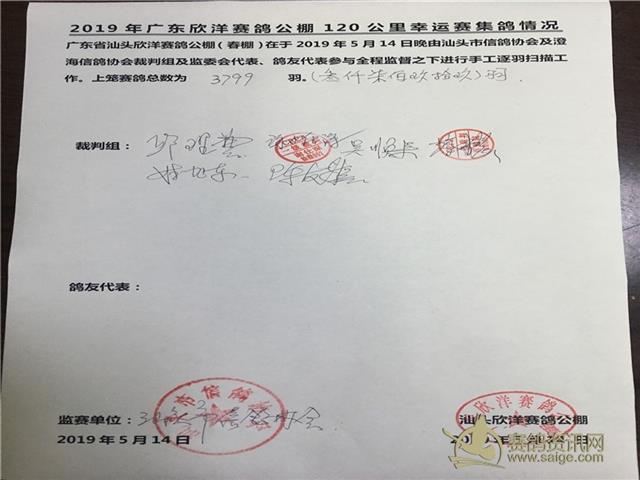 2019年广东欣洋赛鸽公棚120公里幸运赛集鸽情况
广东省汕头欣洋赛鸽公棚（春棚）在于2019年5月14日晚由汕头市信鸽协会及澄
海信鸽协会裁判组及监委会代表、鸽友代表参与全程监督之下进行手工逐羽扫描工
作。上笼赛鸽总数为 3799 羽.（叁仟柒佰玖拾玖）羽.
裁判组：
鸽友代表：
监赛单位：汕头市信鸽协会
2019年5月14日
汕头欣洋赛鸽公棚
赛鸽资讯网
www.saige.com